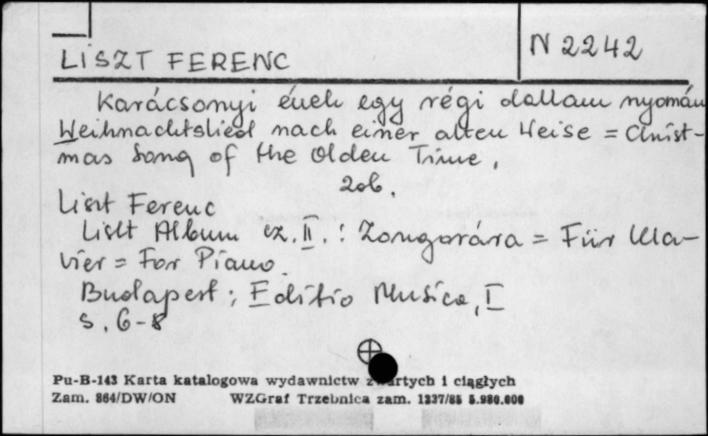 LISZT FERENC
N 2242
Karácsonyi ének egy régi dallam nyomán
Weihnachtslied nach einer alten Weise = Christ-
mas Song of the Olden Time,
zob.
Liszt Ferenc
Liszt Album cz. II. : Zongorára = Für Kla-
vier = For Piano.
Budapest ; Editio Musica, I
s. 6-8
Pu-B-143 Karta katalogowa wydawnictw zwartych i ciągłych
Zam. 864/DW/ON WZGraf Trzebnica zam. 1237/85 5.980.000